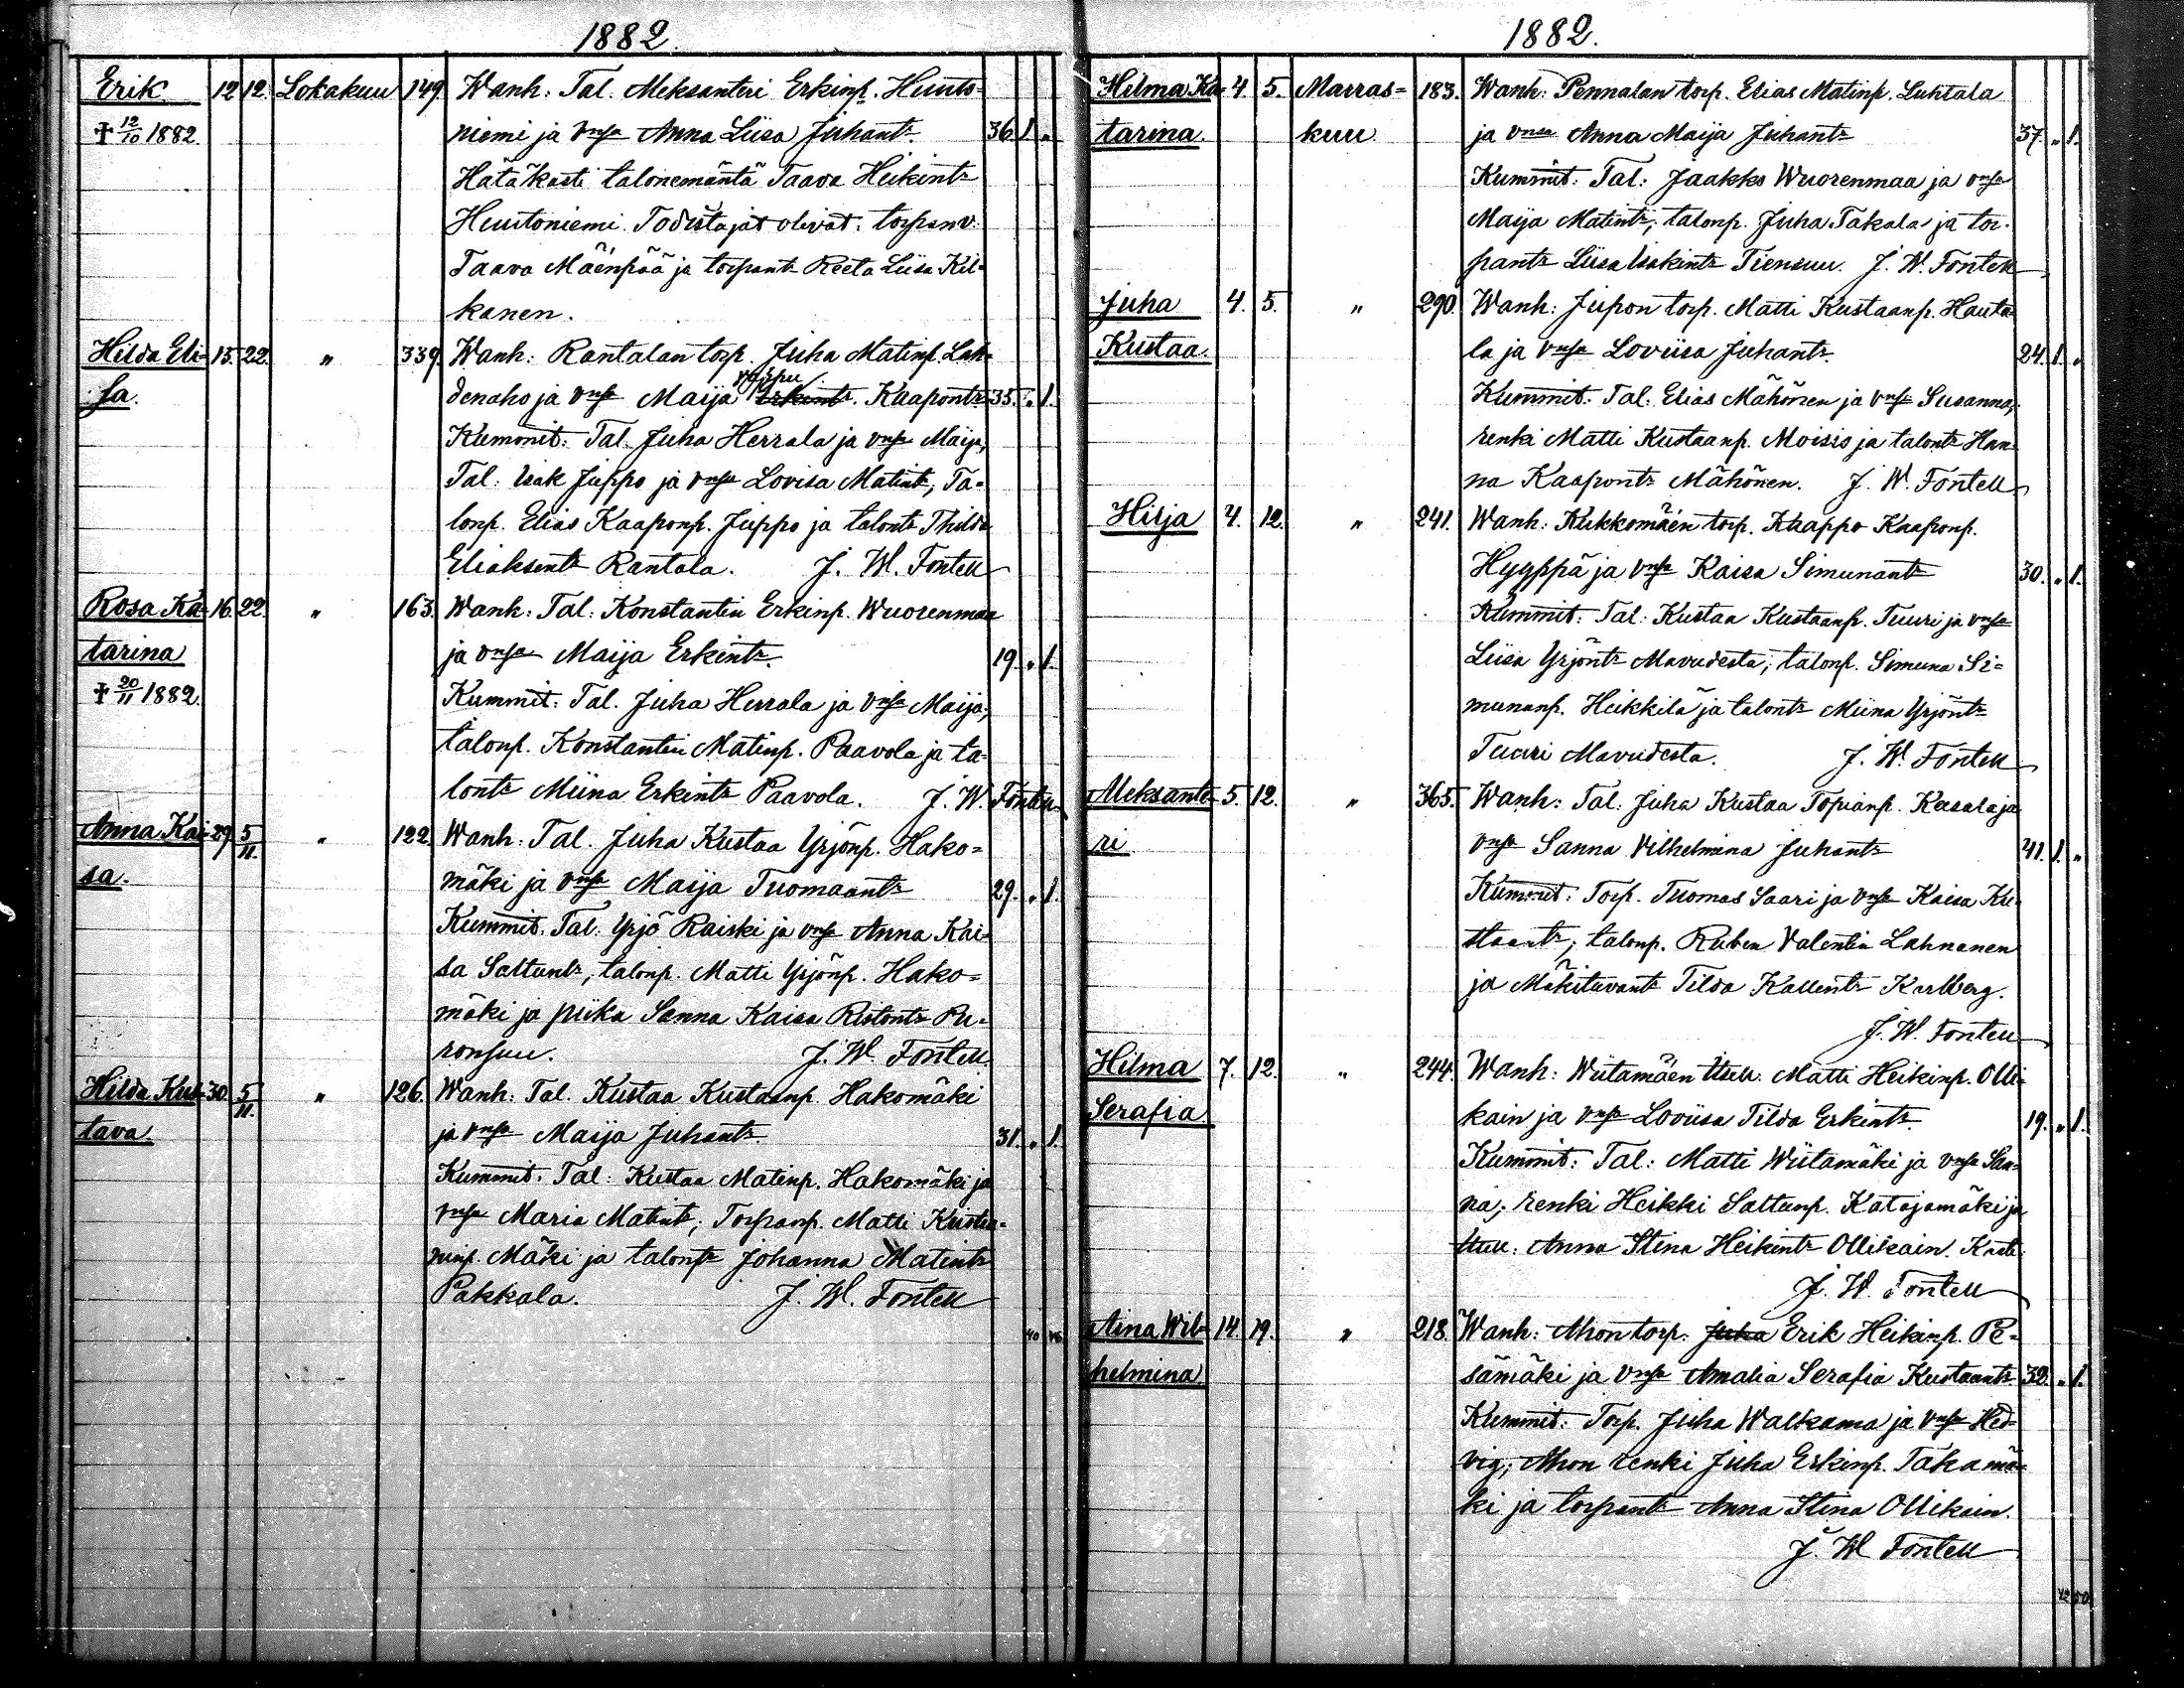 1882.
Erik 12 12. Lokakuu 149. Wanh: Tal. Aleksanteri Erkinp. Huuto-
† 12/10 1882. niemi ja vmsa Anna Liisa Juhant. 36. 1. "
Hätäkasti talonemäntä Taava Heikintr
Huutoniemi. Todistajat olivat: torpanv.
Taava Mäenpää ja torpantr Reeta Liisa Kil-
kanen.
Hilda Eli- 15. 22. " 339. Wanh: Rantalan torp. Juha Matinp. Lah-
sa. denaho ja vmsa Maija Erkintr. Kaapontr 35. " 1.
Kummit: Tal. Juha Herrala ja vmsa Maija,
Tal: Isak Juppo ja vmsa Lovisa Matintr, Ta-
lonp. Elias Kaaponp. Juppo ja talontr Thilda
Eliaksentr Rantala. J. W. Fontell
Rosa Ka- 16. 22. " 163. Wanh: Tal: Konstantin Erkinp. Wuorenmaa
tarina ja vmsa Maija Erkintr. 19. " 1.
† 20/11 1882. Kummit: Tal. Juha Herrala ja vmsa Maija;
talonp. Konstantin Matinp. Paavola ja ta-
lontr Miina Erkintr Paavola. J. W. Fontell
Anna Kai- 29. 5/11. " 122. Wanh: Tal. Juha Kustaa Yrjönp. Hako-
sa. mäki ja vmsa Maija Tuomaantr 29. " 1.
Kummit: Tal. Yrjö Raiski ja vmsa Anna Kai-
sa Sattuntr, talonp. Matti Yrjönp. Hako-
mäki ja piika Sanna Kaisa Ristontr Pu-
ronsuu. J. W. Fontell
Hilda Kus- 30. 5/11. " 126. Wanh: Tal. Kustaa Kustaanp. Hakomäki
tava. ja vmsa Maija Juhantr. 31. " 1.
Kummit: Tal: Kustaa Matinp. Hakomäki ja
vmsa Maria Matintr; Torpanp. Matti Kusta-
ninp. Mäki ja talontr Johanna Matintr
Pakkala. J. W. Fontell
40 46
1882.
Hilma Ka- 4 5. Marras- 183. Wanh: Pennalan torp. Elias Matinp. Luhtala
tarina. kuu. ja vmsa Anna Maija Juhantr 37. " 1.
Kummit: Tal: Jaakko Wuorenmaa ja vmsa
Maija Matintr; talonp. Juha Takala ja tor-
pantr Liisa Isakintr Tiensuu. J. W. Fontell
Juha 4. 5. " 290. Wanh: Jupon torp. Matti Kustaanp. Hauta-
Kustaa. la ja vmsa Loviisa Juhantr. 24. 1. "
Kummit: Tal: Elias Mähönen ja vmsa Susanna;
renki Matti Kustaanp. Moisio ja talontr Han-
na Kaapontr Mähönen. J. W. Fontell
Hilja 4. 12. " 241. Wanh: Kukkomäen torp. Kaappo Kaaponp.
Hyyppä ja vmsa Kaisa Simunantr 30. " 1.
Kummit: Tal: Kustaa Kustaanp. Tuuri ja vmsa
Liisa Yrjöntr Alavudesta; talonp. Simuna Si-
munanp. Heikkilä ja talontr Miina Yrjöntr
Tuuri Alavudesta. J. W. Fontell
Aleksante- 5. 12. " 365. Wanh: Tal: Juha Kustaa Topianp. Kasala ja
ri vmsa Sanna Vilhelmina Juhantr 41. 1. "
Kummit: Torp. Tuomas Saari ja vmsa Kaisa Ku-
staantr; talonp. Ruben Valentin Lahnanen
ja Mäkituvantr Tilda Kallentr Karlberg.
J. W. Fontell
Hilma 7. 12. " 244. Wanh: Wiitamäen itsell. Matti Heikinp. Olli-
Serafia. kain ja vmsa Loviisa Tilda Erkintr. 19. " 1.
Kummit: Tal: Matti Wiitamäki ja vmsa San-
na; renki Heikki Sattunp. Katajamäki ja
itsell. Anna Stina Heikintr Ollikain.
J. W. Fontell
Aina Wil- 14. 19. " 218. Wanh: Ahon torp. Juha Erik Heikinp. Pe-
helmina. sämäki ja vmsa Amalia Serafia Kustaantr 39. " 1.
Kummit: Torp. Juha Walkama ja vmsa Hed-
vig; Ahon renki Juha Erkinp. Takamä-
ki ja torpantr Anna Stina Ollikain.
J. W. Fontell
42 50